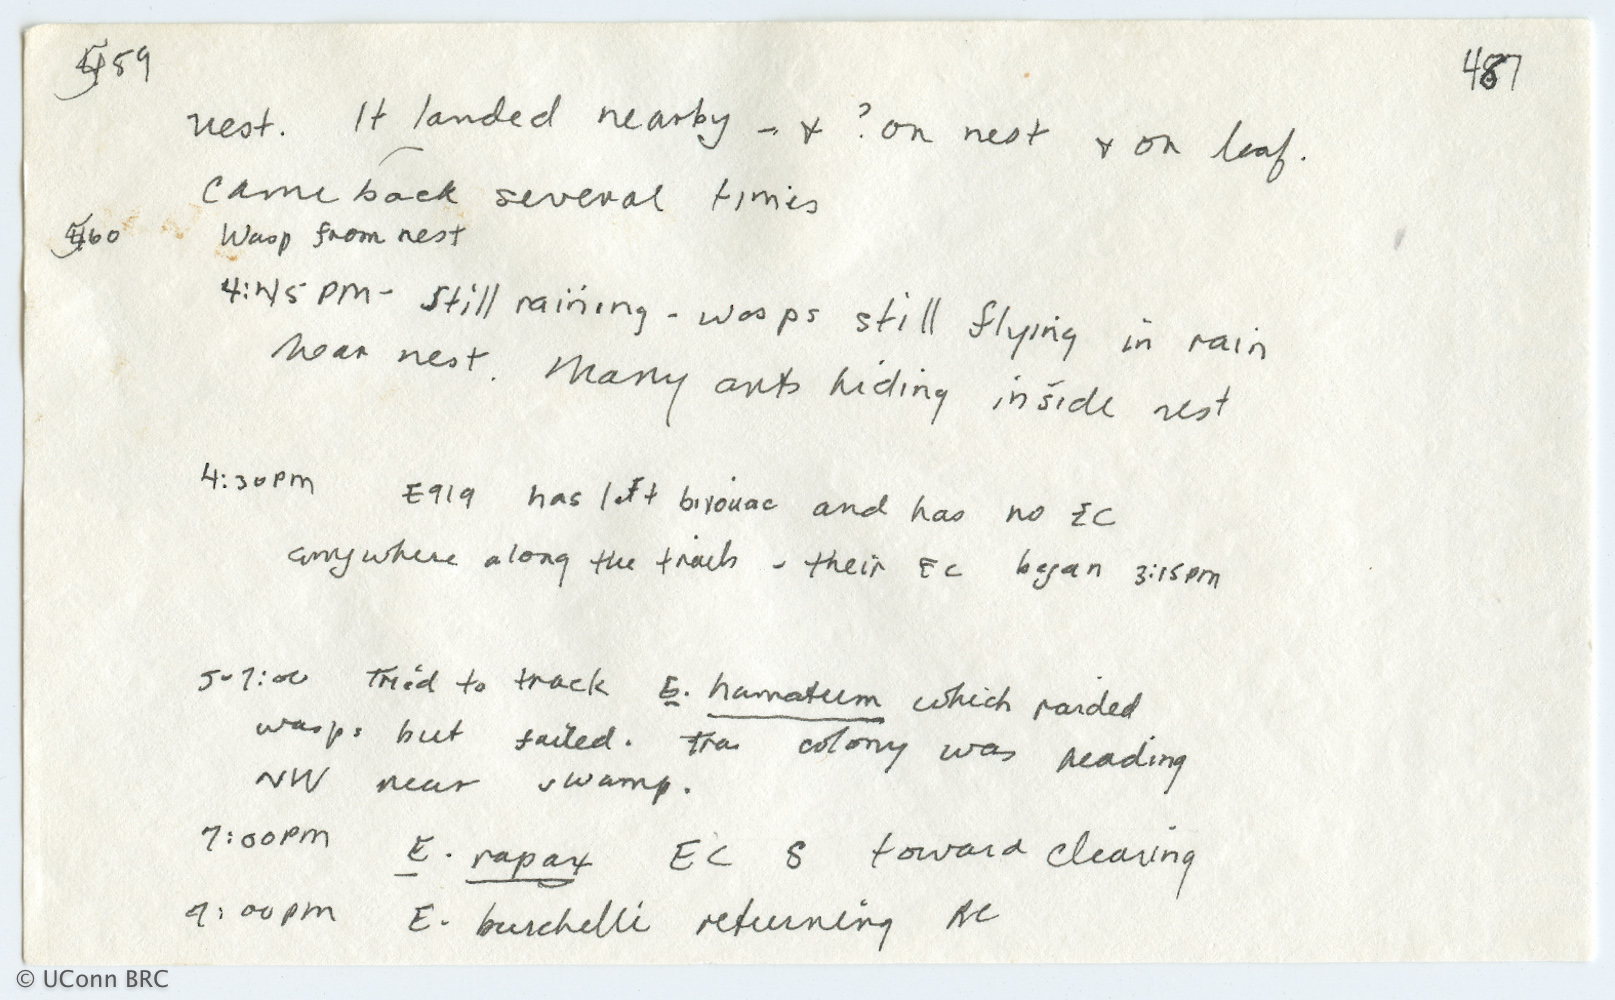 59 487
nest. It landed nearby - + ? on nest + on leaf.
came back several times
60 Wasp from nest
4:45 PM - Still raining - wasps still flying in rain
near nest. Many ants hiding inside nest
4:30 PM E919 has left bivouac and has no EC
anywhere along the trails - their EC began 3:15pm
5-7:00 Tried to track E. hamatum which raided
wasps but failed. colony was heading
NW near swamp.
7:00 PM E. rapax EC S toward clearing
7:00 pm E. burchelli returning RC
© UConn BRC